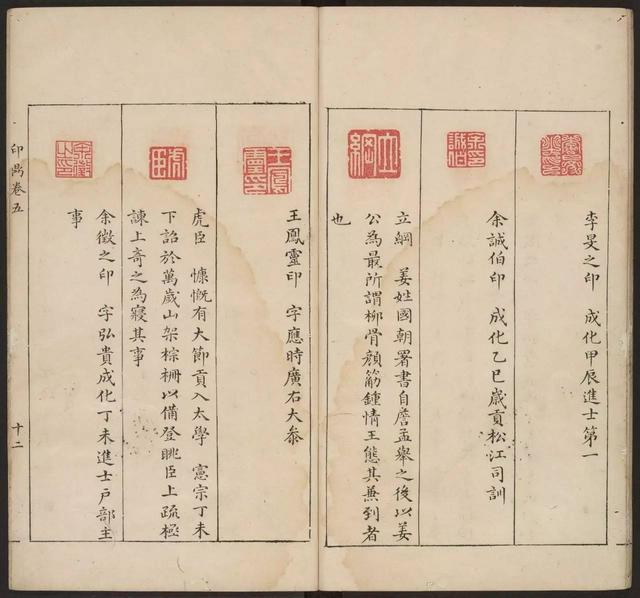 李旻之印　成化甲辰進士第一
余誠伯印　成化乙巳歲貢松江司訓
立綱
立綱　姜姓國朝署書自詹孟舉之後以姜
公為最所謂柳骨顏筋鍾情王態其兼到者
也
王鳳靈印
王鳳靈印　字應時廣右大叅
虎臣
虎臣　慷慨有大節貢入太學　憲宗丁未
下詔於萬歲山架棕棚以備登眺臣上疏極
諫上奇之為寢其事
余徵之印　字弘貴成化丁未進士戶部主
事
卷五
十二